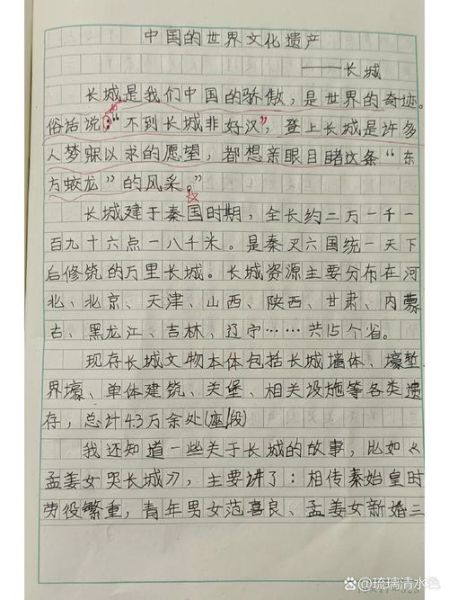 中国的世界文化遗产
——长城
长城是我们中国的骄傲，是世界的奇迹。
俗话说："不到长城非好汉"，登上长城是许多
人梦寐以求的愿望，都想亲眼目睹这条"东
方蛟龙"的风采。
长城建于秦国时期，全长约二万一千一
百九十六点一八千米。是秦灭六国统一天下
后修筑的万里长城。长城资源主要分布在河
北、北京、天津、山西、陕西、甘肃、内蒙
古、黑龙江、吉林、辽宁……共15个省。
现存长城文物本体包括长城墙体、壕堑
界壕、单体建筑、关堡、相关设施等各类遗
存，总计4.3万余处(座/段)
我还知道一些关于长城的故事，比如《
孟姜女哭长城》，主要讲了：相传秦始皇时
劳役繁重，青年男女范喜良、孟姜女新婚三
@琉璃清水色